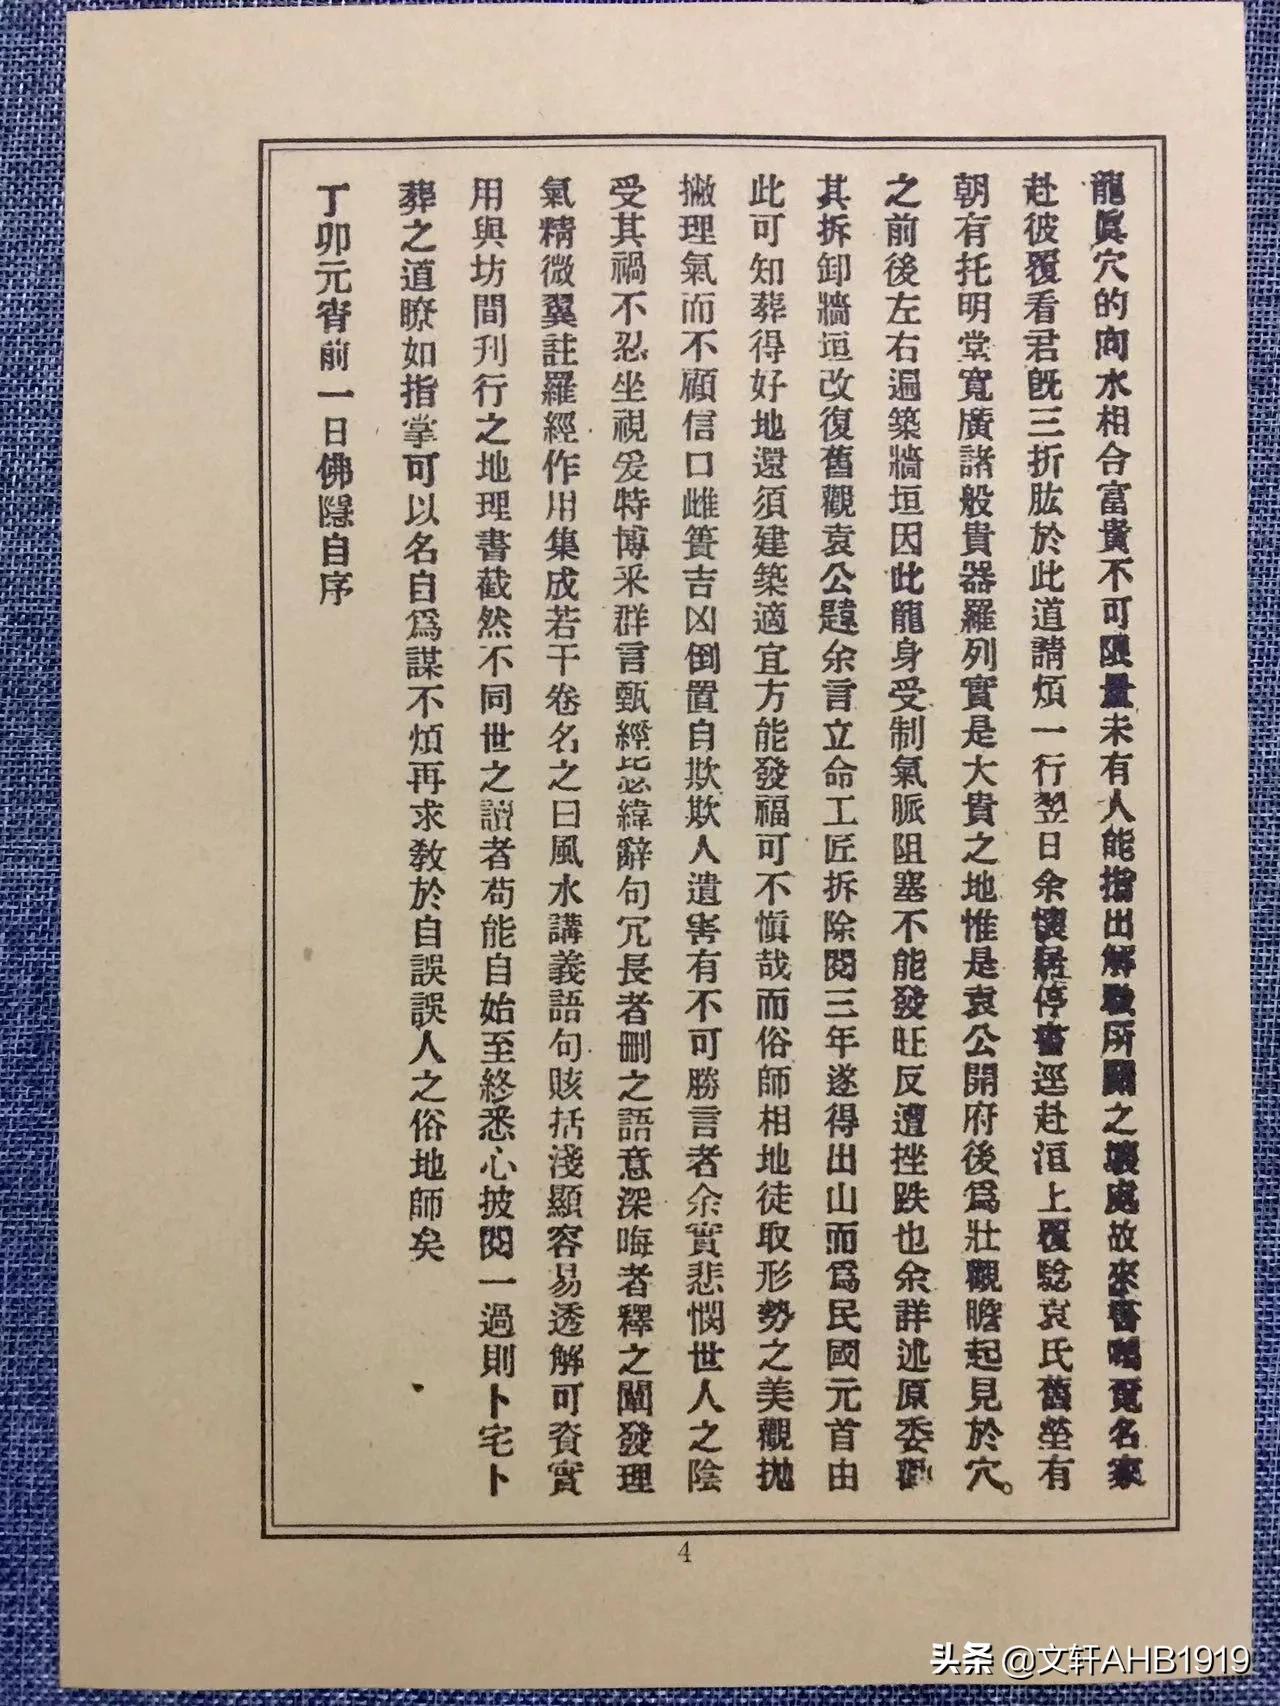 龍眞穴的向水相合富貴不可限量未有人能指出解散所闢之壞處故來書囑覓名家
赴彼覆看君旣三折肱於此道請煩一行翌日余懷居停書逕赴洹上覆騐袁氏舊塋有
朝有托明堂寬廣諸般貴器羅列實是大貴之地惟是袁公開府後爲壯觀瞻起見於穴。
之前後左右遍築牆垣因此龍身受制氣脈阻塞不能發旺反遭挫跌也余詳述原委勸
其拆卸牆垣改復舊觀袁公韙余言立命工匠拆除閱三年遂得出山而爲民國元首由
此可知葬得好地還須建築適宜方能發福可不愼哉而俗師相地徒取形勢之美觀拋
撇理氣而不顧信口雌簧吉凶倒置自欺欺人遺害有不可勝言者余實悲憫世人之陰
受其禍不忍坐視爰特博采群言甄經毖緯辭句冗長者删之語意深晦者釋之闡發理
氣精微翼註羅經作用集成若干卷名之曰風水講義語句賅括淺顯容易透解可資實
用與坊間刊行之地理書截然不同世之讀者苟能自始至終悉心披閱一過則卜宅卜
葬之道瞭如指掌可以名自爲謀不煩再求敎於自誤誤人之俗地師矣
丁卯元宵前一日佛隱自序
4
头条 @文轩AHB1919